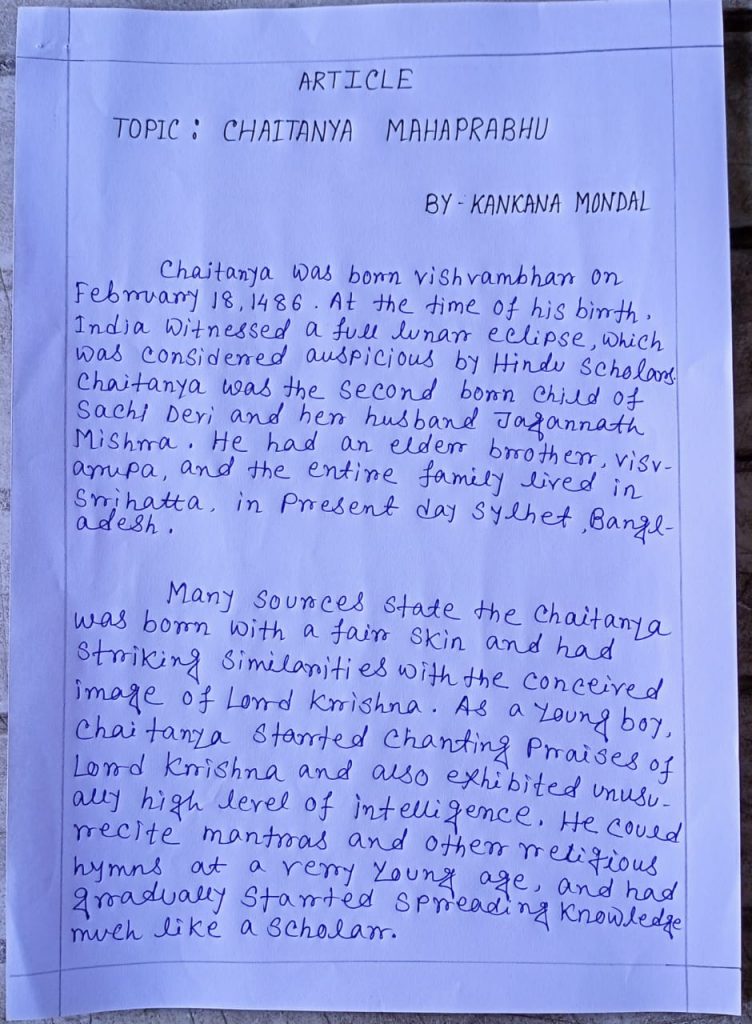 ARTICLE
TOPIC : CHAITANYA MAHAPRABHU
BY - KANKANA MONDAL
Chaitanya was born vishvambhar on
February 18, 1486. At the time of his birth,
India witnessed a full lunar eclipse, which
was considered auspicious by Hindu scholars.
Chaitanya was the second born child of
Sachi Devi and her husband Jagannath
Mishra. He had an elder brother, visv-
arupa, and the entire family lived in
Srihatta, in Present day Sylhet, Bangl-
adesh.
Many sources state the Chaitanya
was born with a fair skin and had
striking similarities with the conceived
image of Lord Krishna. As a young boy,
Chaitanya started chanting Praises of
Lord Krishna and also exhibited unusu-
ally high level of intelligence. He could
recite mantras and other religious
hymns at a very young age, and had
gradually started spreading knowledge
much like a scholar.